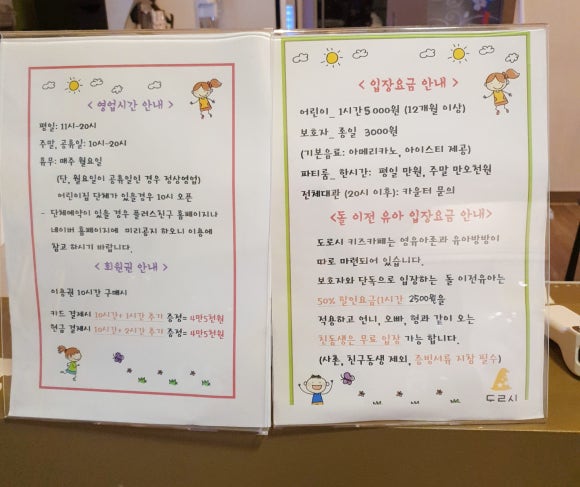 < 영업시간 안내 >
평일: 11시-20시
주말, 공휴일: 10시-20시
휴무: 매주 월요일
(단, 월요일이 공휴일인 경우 정상영업)
어린이집 단체가 있을경우 10시 오픈
- 단체예약이 있을 경우 플러스친구 홈페이지나
네이버 홈페이지에 미리공지 하오니 이용에
참고 하시기 바랍니다.
< 회원권 안내 >
이용권 10시간 구매시
카드 결제시 10시간+ 1시간 추가 증정= 4만5천원
현금 결제시 10시간+ 2시간 추가 증정= 4만5천원
< 입장요금 안내 >
어린이_ 1시간 5000원 (12개월 이상)
보호자_ 종일 3000원
(기본음료: 아메리카노, 아이스티 제공)
파티룸_ 한시간: 평일 만원, 주말 만오천원
전체대관 (20시 이후): 카운터 문의
<돌 이전 유아 입장요금 안내>
도로시 키즈카페는 영유아존과 유아방방이
따로 마련되어 있습니다.
보호자와 단독으로 입장하는 돌 이전유아는
50% 할인요금(1시간 2500원)을
적용하고 언니, 오빠, 형과 같이 오는
친동생은 무료 입장 가능 합니다.
(사촌, 친구동생 제외, 증빙서류 지참 필수)
도로시